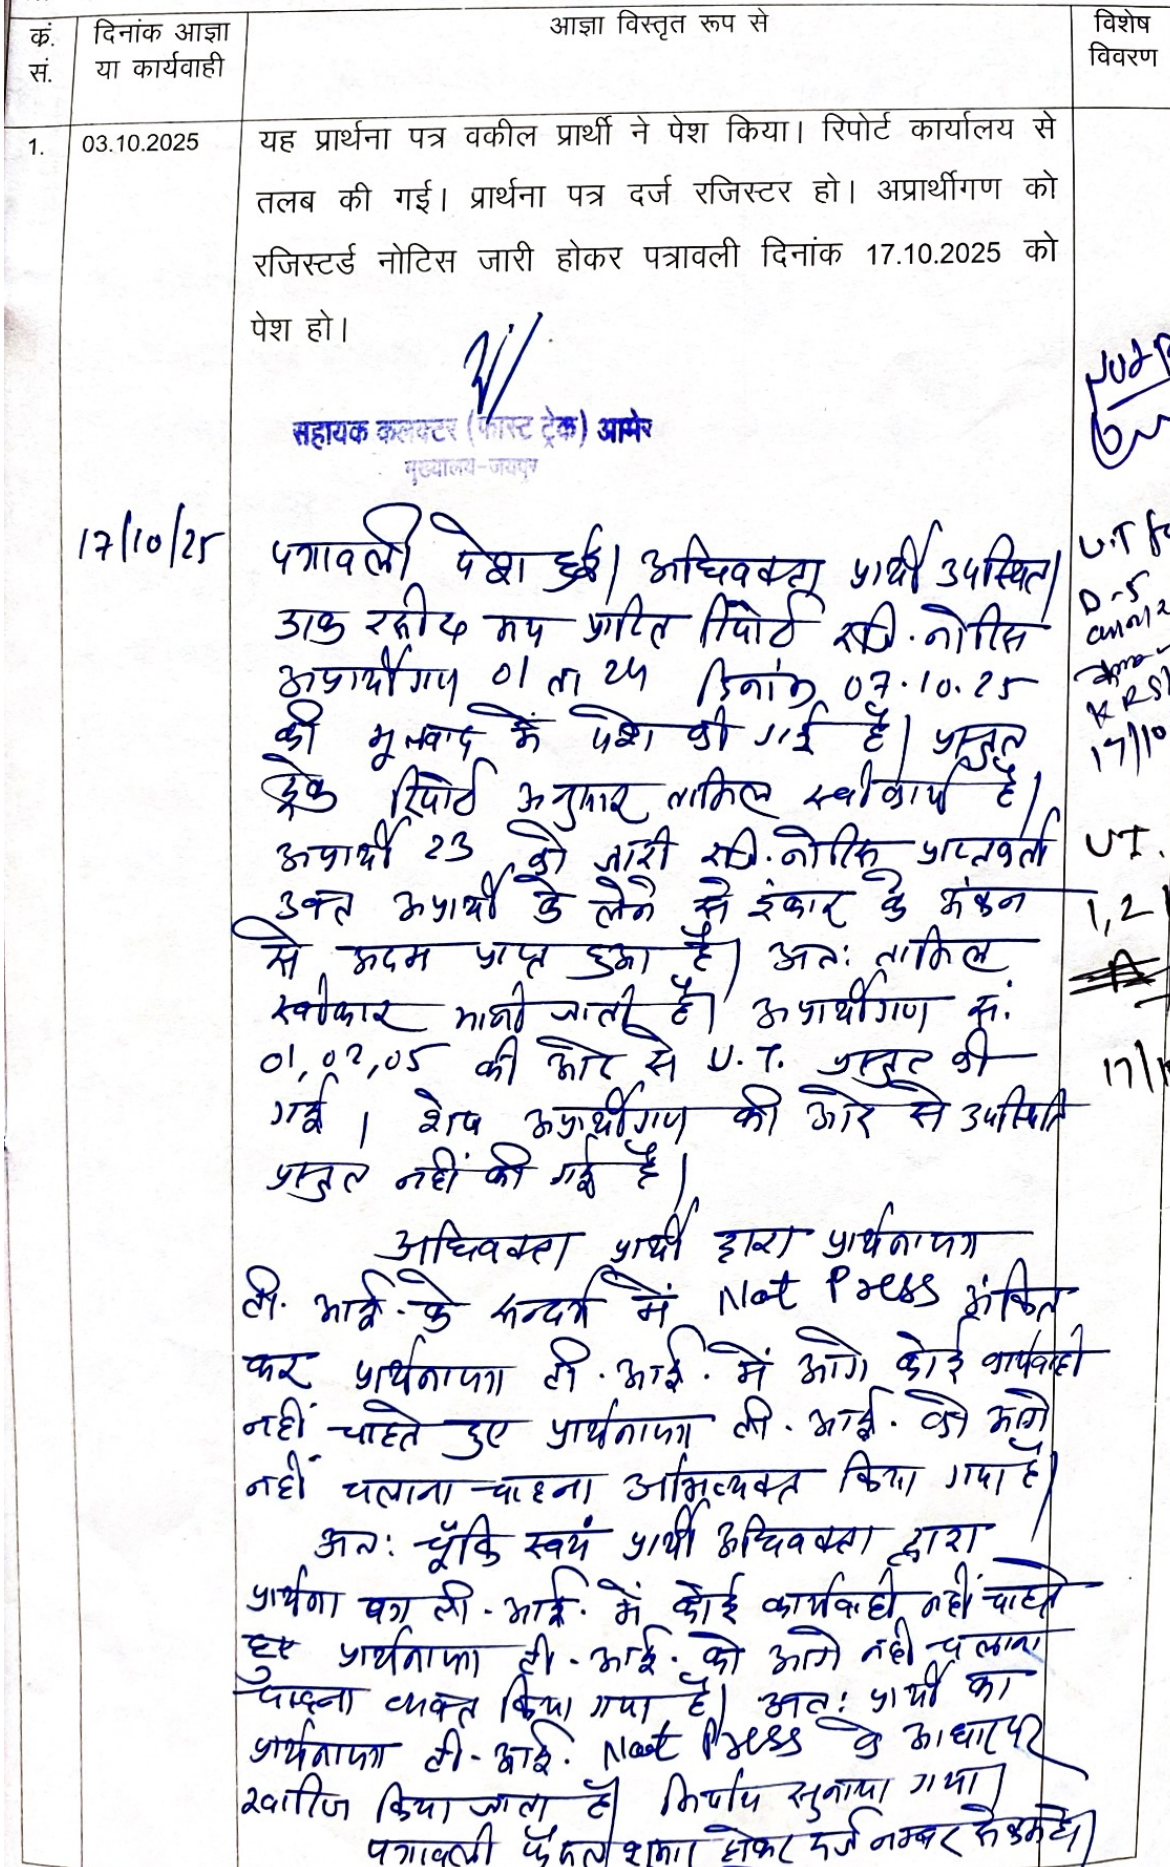 कं. सं.
दिनांक आज्ञा या कार्यवाही
आज्ञा विस्तृत रूप से
विशेष विवरण
1. 03.10.2025
यह प्रार्थना पत्र वकील प्रार्थी ने पेश किया। रिपोर्ट कार्यालय से
तलब की गई। प्रार्थना पत्र दर्ज रजिस्टर हो। अप्रार्थीगण को
रजिस्टर्ड नोटिस जारी होकर पत्रावली दिनांक 17.10.2025 को
पेश हो।
सहायक कलक्टर (फास्ट ट्रेक) आमेर
मुख्यालय-जयपुर
17/10/25
पत्रावली पेश हुई। अधिवक्ता प्रार्थी उपस्थित।
डाक रसीद मय प्राप्ति रिपोर्ट रजि. नोटिस
अप्रार्थीगण 01 ता 24 दिनांक 07.10.25
को मूलवाद में पेश की गई है। प्रस्तुत
ट्रेक रिपोर्ट अनुसार तामिल स्वीकार्य है।
अप्रार्थी 23 को जारी रजि. नोटिस प्राप्तकर्ता
उक्त अप्रार्थी के लेने से इंकार के अंकन
से अदम प्राप्त हुआ है। अतः तामिल
स्वीकार मानी जाती है। अप्रार्थीगण सं.
01,02,05 की ओर से U.T. प्रस्तुत की
गई। शेष अप्रार्थीगण की ओर से उपस्थिति
प्रस्तुत नहीं की गई है।
अधिवक्ता प्रार्थी द्वारा प्रार्थनापत्र
टी. आई. के सन्दर्भ में Not Press अंकित
कर प्रार्थनापत्र टी. आई. में आगे कोई कार्यवाही
नहीं चाहते हुए प्रार्थनापत्र टी. आई. को आगे
नहीं चलाना चाहना अभिव्यक्त किया गया है।
अतः चूँकि स्वयं प्रार्थी अधिवक्ता द्वारा
प्रार्थना पत्र टी. आई. में कोई कार्यवाही नहीं चाहते
हुए प्रार्थनापत्र टी. आई. को आगे नहीं चलाना
चाहना व्यक्त किया गया है। अतः प्रार्थी का
प्रार्थनापत्र टी. आई. Not Press के आधार पर
खारिज किया जाता है। निर्णय सुनाया गया।
पत्रावली फैसल शुमार होकर दर्ज नम्बर से कम हो।
U.T
D-5
17/10
U.T.
1,2
17/1